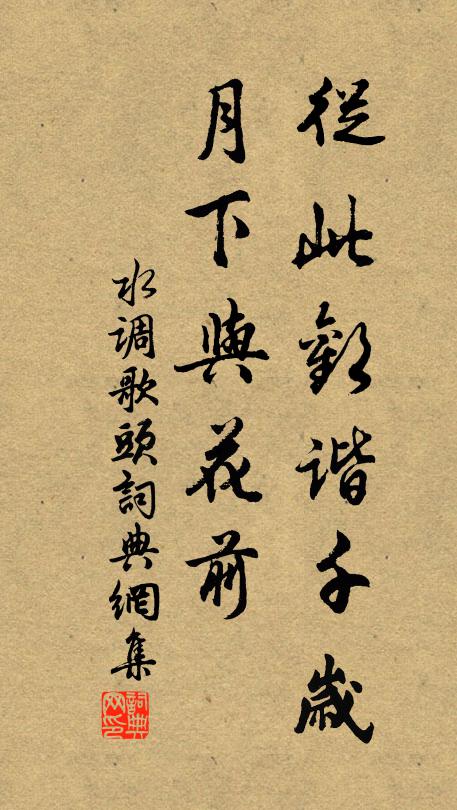 從此歡諧千歲
月下與花前
水调歌頭詞典網集
詞典网印